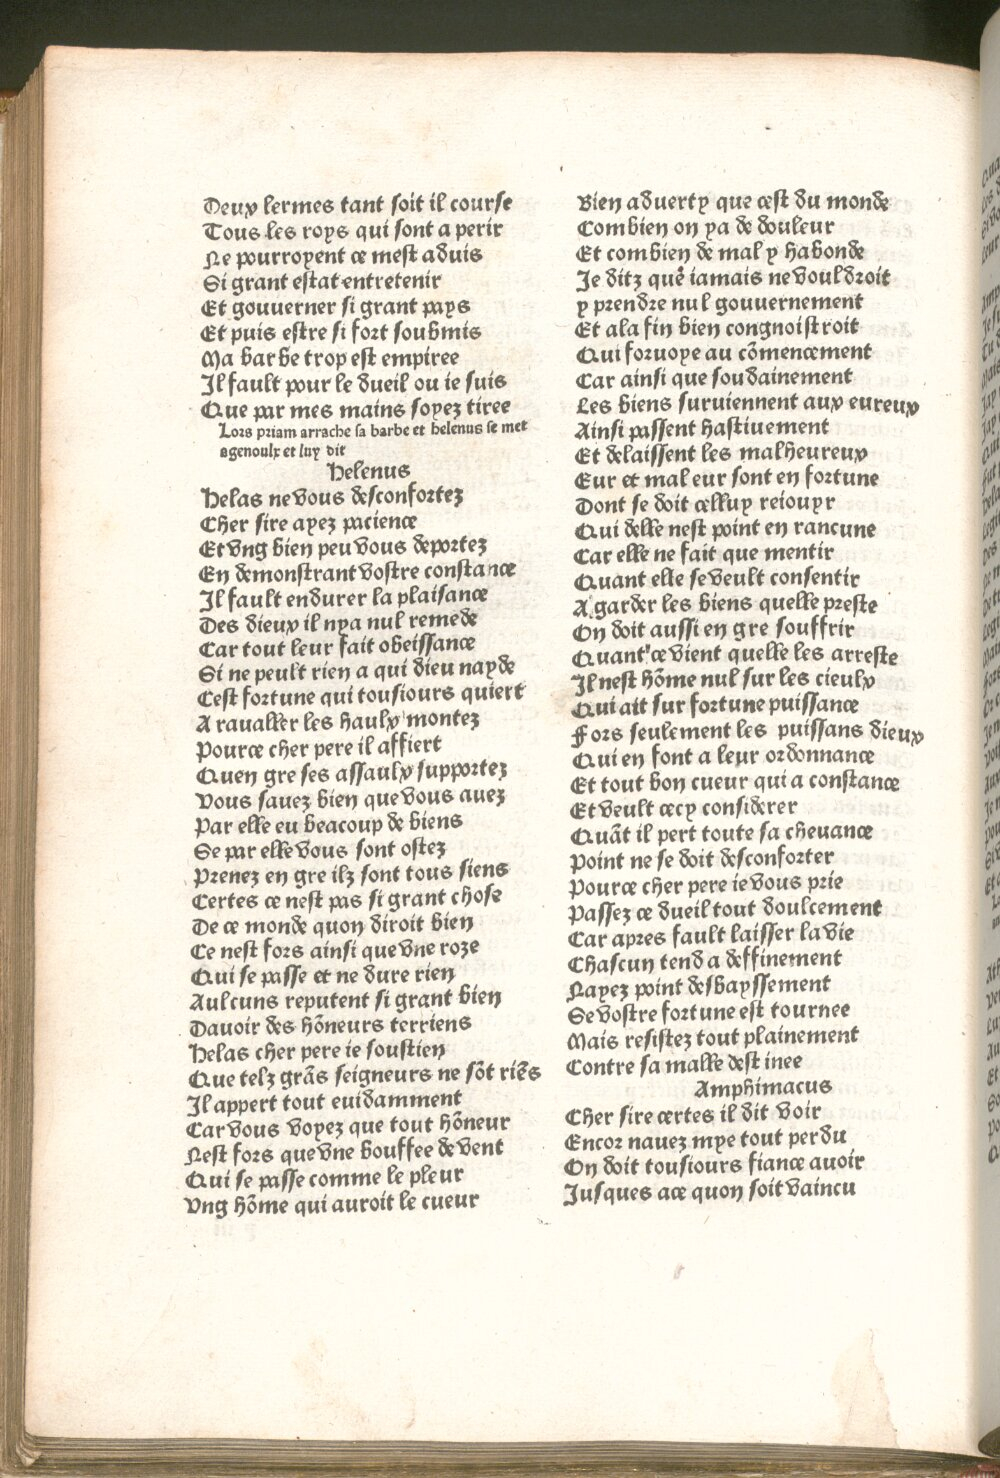 Deux lermes tant soit il course
Tous les roys qui sont a perir
Ne pourroyent ce mest aduis
Si grant estat entretenir
Et gouuerner si grant pays
Et puis estre si fort soubmis
Ma barbe trop est empiree
Il fault pour le dueil ou ie suis
Que par mes mains soyez tiree
Lors priam arrache sa barbe et helenus se met
agenoulx et luy dit
Helenus
Helas ne vous desconfortez
Cher sire ayez pacience
Et vng bien peu vous deportez
En demonstrant vostre constance
Il fault endurer la plaisance
Des dieux il nya nul remede
Car tout leur fait obeissance
Si ne peult rien a qui dieu nayde
Cest fortune qui tousiours quiert
A raualler les haulx montez
Pource cher pere il affiert
Quen gre ses assaulx supportez
Vous sauez bien que vous auez
Par elle eu beacoup de biens
Se par elle vous sont ostez
Prenez en gre ilz sont tous siens
Certes ce nest pas si grant chose
De ce monde quon diroit bien
Ce nest fors ainsi que vne roze
Qui se passe et ne dure rien
Aulcuns reputent si grant bien
Dauoir des hõneurs terriens
Helas cher pere ie soustien
Que telz grãs seigneurs ne sõt riẽs
Il appert tout euidamment
Car vous voyez que tout hõneur
Nest fors que vne bouffee de vent
Qui se passe comme le pleur
Vng hõme qui auroit le cueur
Bien aduerty que cest du monde
Combien on ya de douleur
Et combien de mal y habonde
Je ditz quẽ iamais ne vouldroit
y prendre nul gouuernement
Et ala fin bien congnoistroit
Qui foruoye au cõmencement
Car ainsi que soudainement
Les biens suruiennent aux eureux
Ainsi passent hastiuement
Et delaissent les malheureux
Eur et mal eur sont en fortune
Dont se doit celluy reiouyr
Qui delle nest point en rancune
Car elle ne fait que mentir
Quant elle se veult consentir
A garder les biens quelle preste
On doit aussi en gre souffrir
Quant ce vient quelle les arreste
Il nest hõme nul sur les cieulx
Qui ait sur fortune puissance
Fors seulement les puissans dieux
Qui en font a leur ordonnance
Et tout bon cueur qui a constance
Et veult cecy considerer
Quãt il pert toute sa cheuance
Point ne se doit desconforter
Pource cher pere ie vous prie
Passez ce dueil tout doulcement
Car apres fault laisser la vie
Chascun tend a deffinement
Nayez point desbayssement
Se vostre fortune est tournee
Mais resistez tout plainement
Contre sa malle destinee
Amphimacus
Cher sire certes il dit voir
Encor nauez mye tout perdu
On doit tousiours fiance auoir
Jusques ace quon soit vaincu